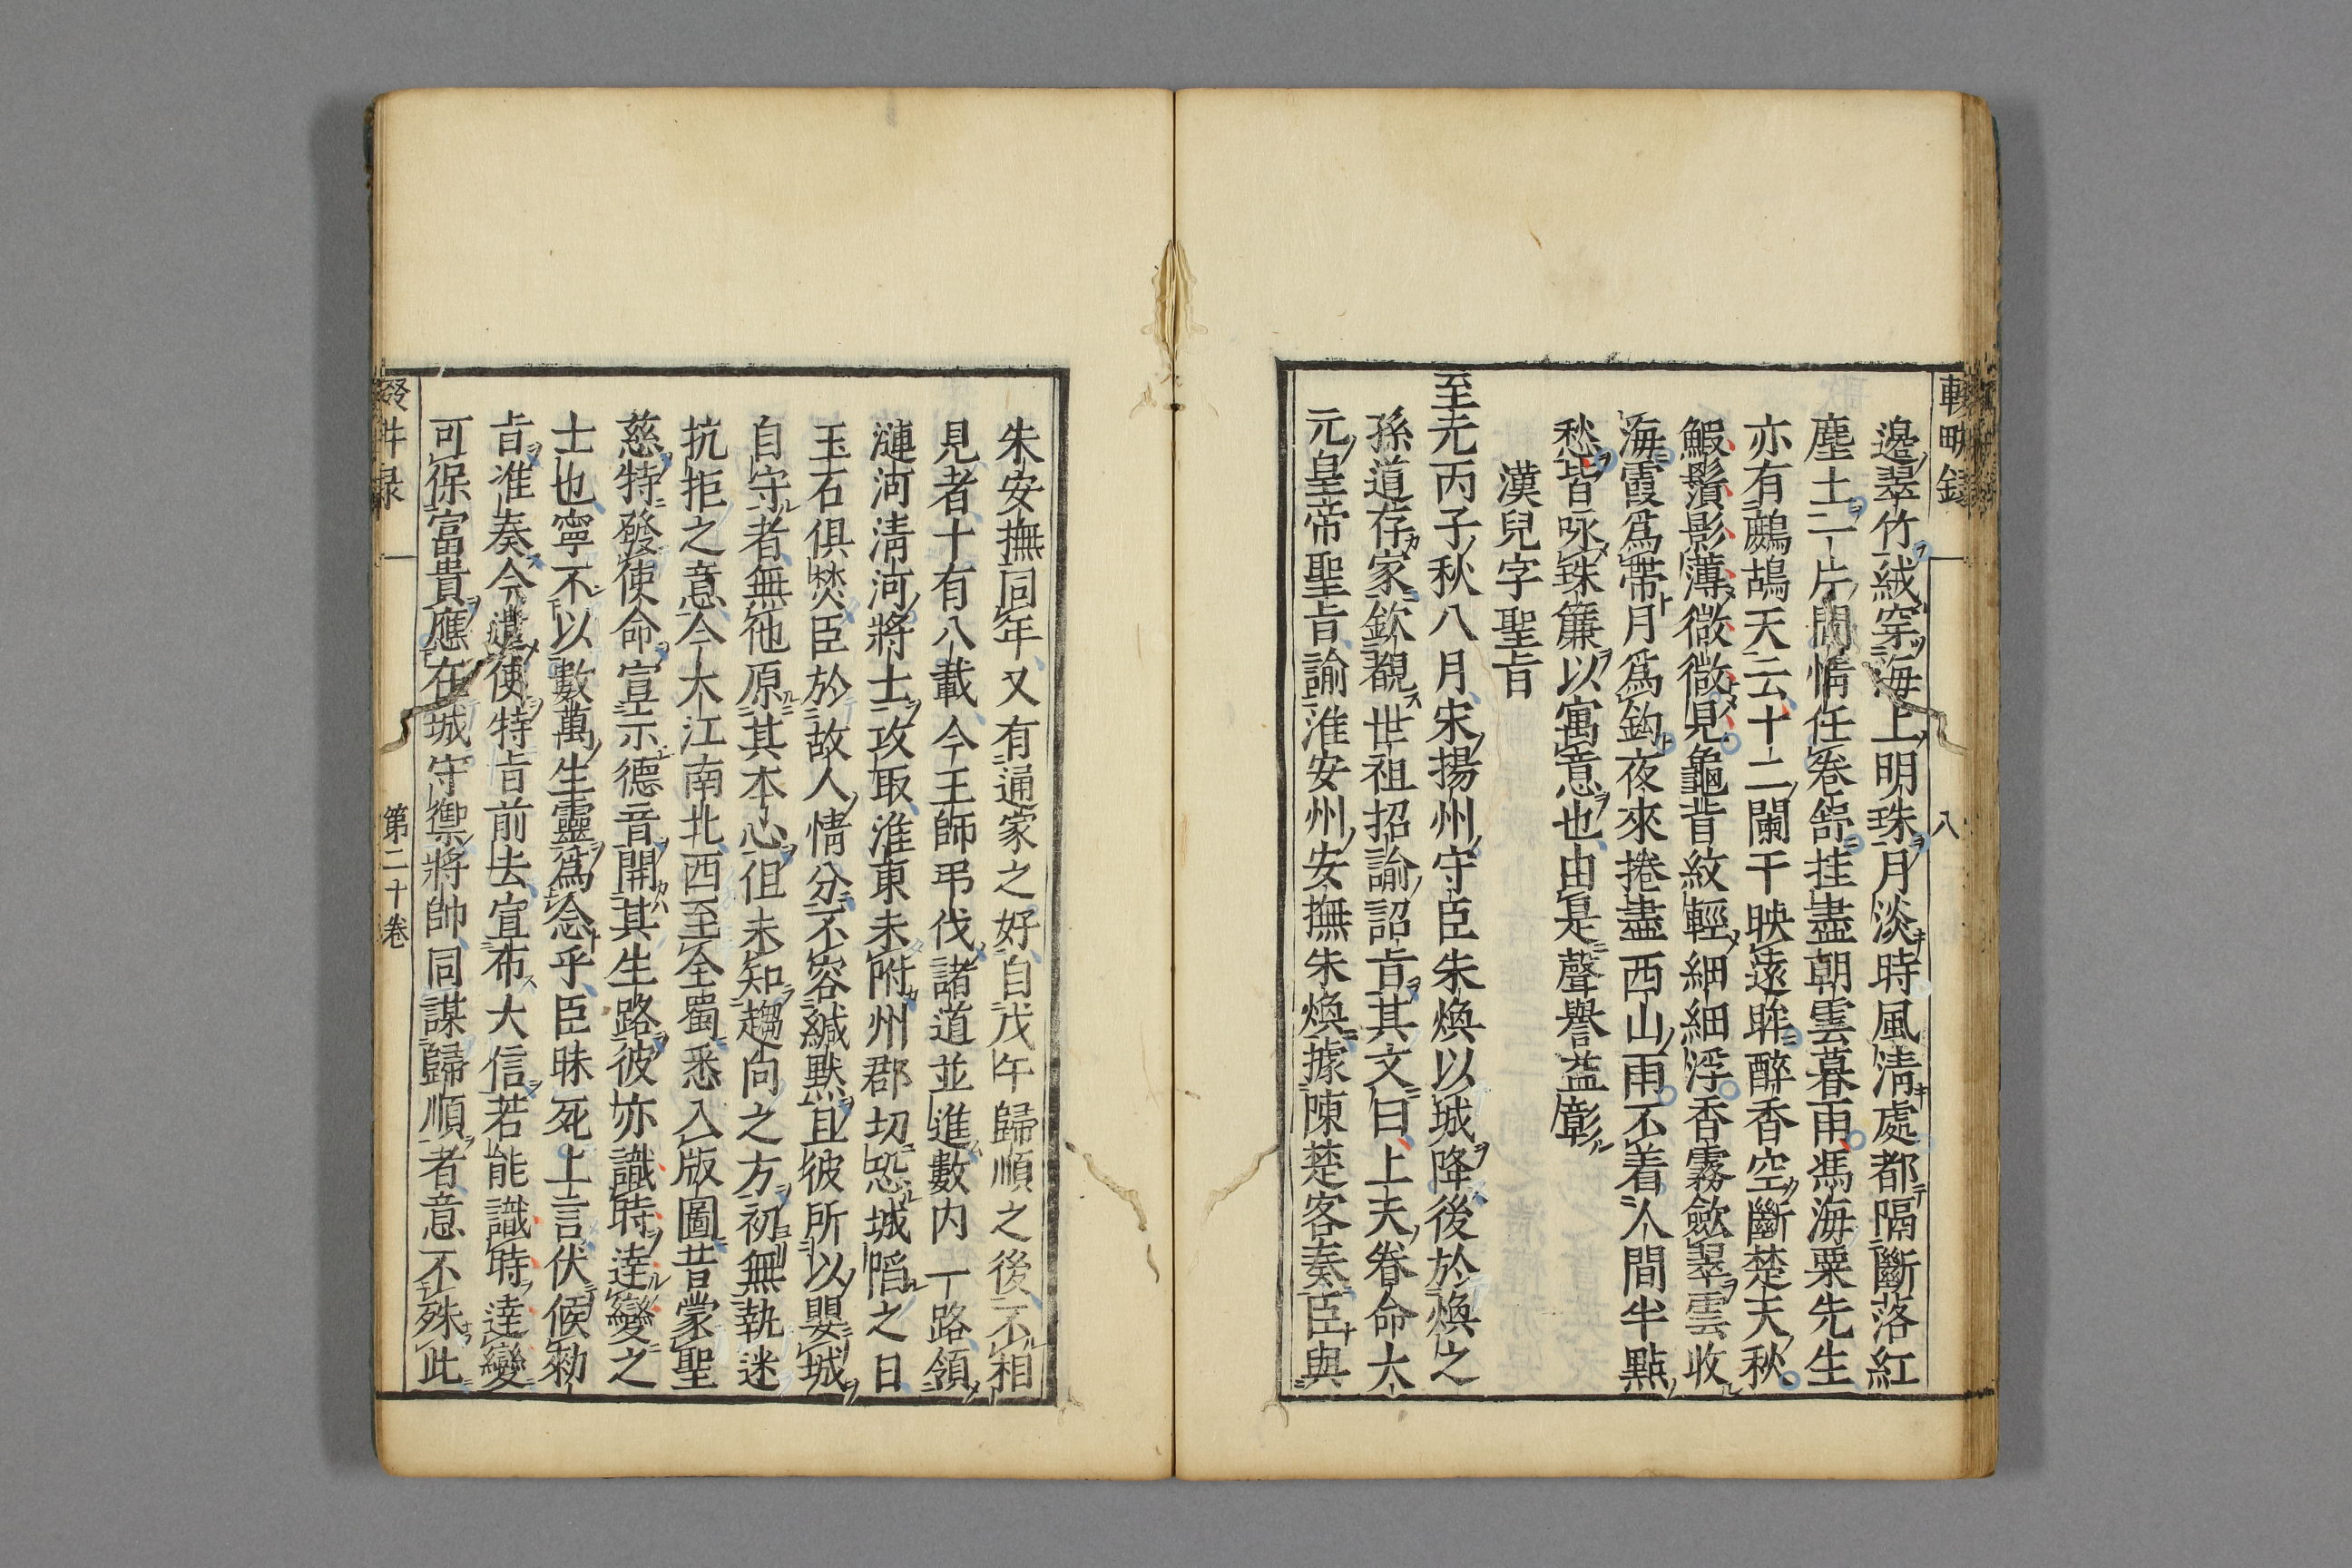 輟畊録
八
邊翠竹絨穿海上明珠月淡時風清處都隔斷落紅
塵土一片閑情任卷舒挂盡朝雲暮雨馮海粟先生
亦有鷓鴣天云十二闌干映遠眸醉香空斷楚天秋
鰕鬚影薄微微見龜背紋輕細細浮香霧歛翠雲收
海霞爲帶月爲鈎夜來捲盡西山雨不着人間半點
愁皆咏珠簾以寓意也由是聲譽益彰
漢兒字聖㫖
至元丙子秋八月宋揚州守臣朱煥以城降後於煥之
孫道存家欽覩世祖招諭詔㫖其文曰上天眷命大
元皇帝聖㫖諭淮安州安撫朱煥據陳楚客奏臣與
朱安撫同年又有通家之好自戊午歸順之後不相
見者十有八載今王師弔伐諸道並進數内一路領
漣海清河將士攻取淮東未附州郡切恐城䧟之日
玉石俱焚臣於故人情分不容緘黙且彼所以嬰城
自守者無他原其本心但未知趨向之方初無執迷
抗拒之意今大江南北西至全蜀悉入版圖昔蒙聖
慈特發使命宣示德音開其生路彼亦識時達變之
士也寧不以數萬生靈爲念乎臣昧死上言伏候勑
㫖准奏今遣使特㫖前去宣布大信若能識時達變
可保富貴應在城守禦將帥同謀歸順者意不殊此
輟畊録
第二十卷